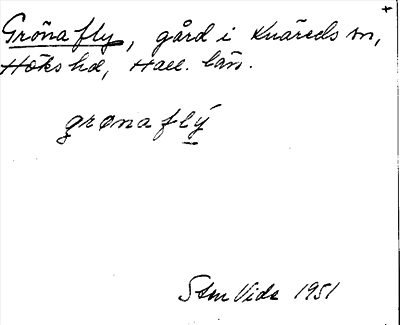 +
Gröna fly, gård i Knäreds sn,
Höks hd, Hall. län.
grønaflý
Sten Vide 1951